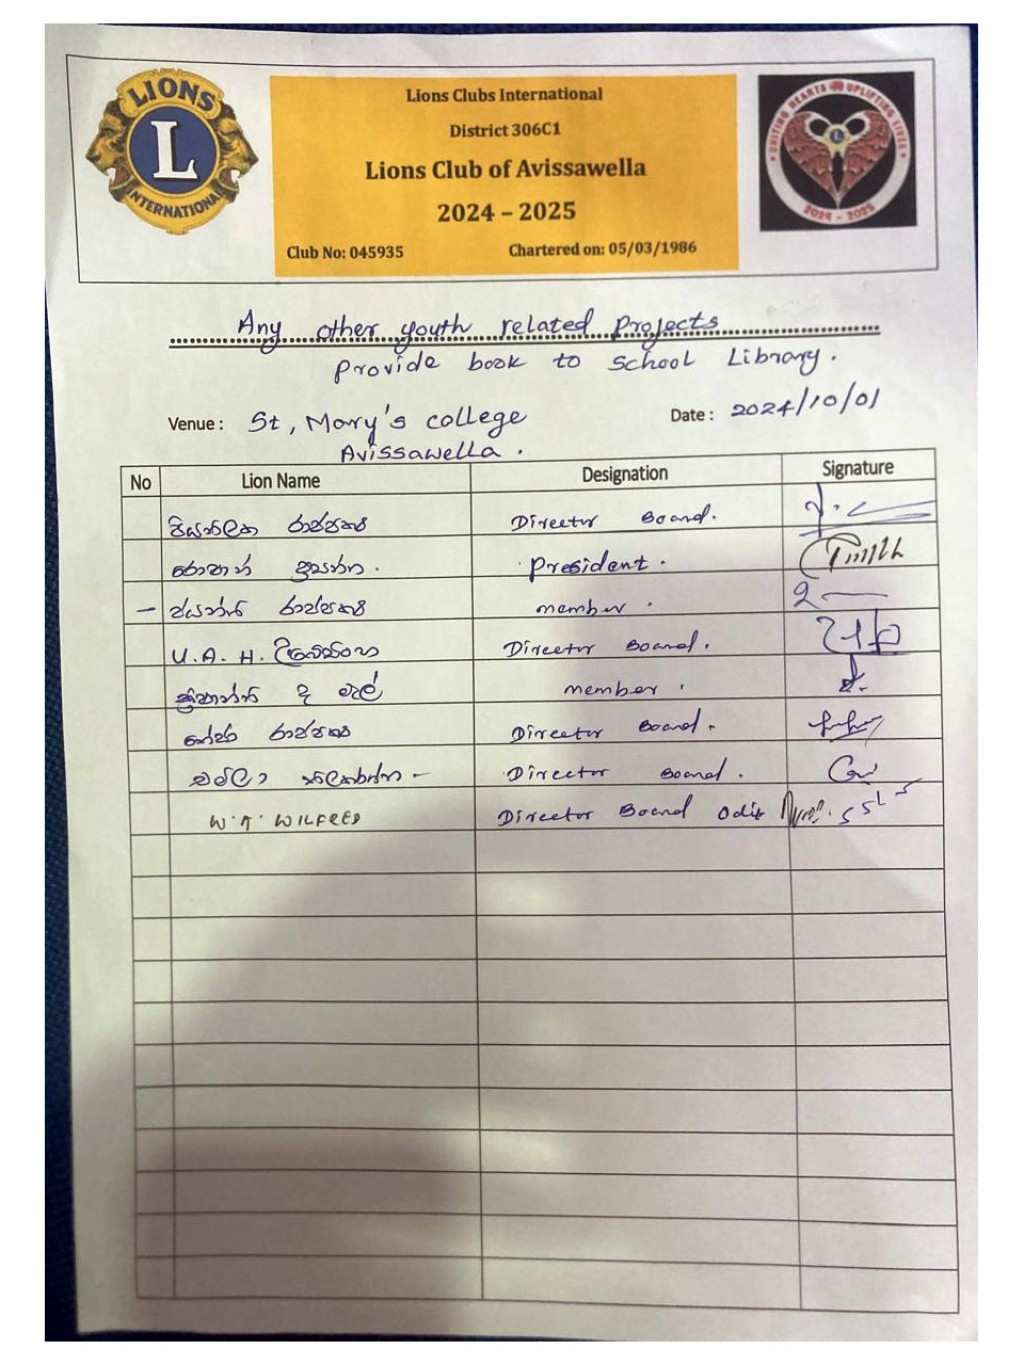 LIONS
L
INTERNATIONAL
Lions Clubs International
District 306C1
Lions Club of Avissawella
2024 – 2025
Club No: 045935 Chartered on: 05/03/1986
UNITING HEARTS UPLIFTING LIVES
2024 - 2025
Any other youth related projects
Provide book to School Library.
Venue : St, Mary's college Date : 2024/10/01
Avissawella .
No Lion Name Designation Signature
පියතිලක රාජපක්ෂ Director Board.
රොහාන් ප්‍රසන්න . President .
– ජයන්ති රාජපක්ෂ member .
U. A. H. Director Board.
ද මැල් member .
රාජපක්ෂ Director Board.
චම්ලා තිලකරත්න – Director Board.
W. A. WILFRED Director Board Odit